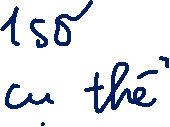 1 số
cụ thể